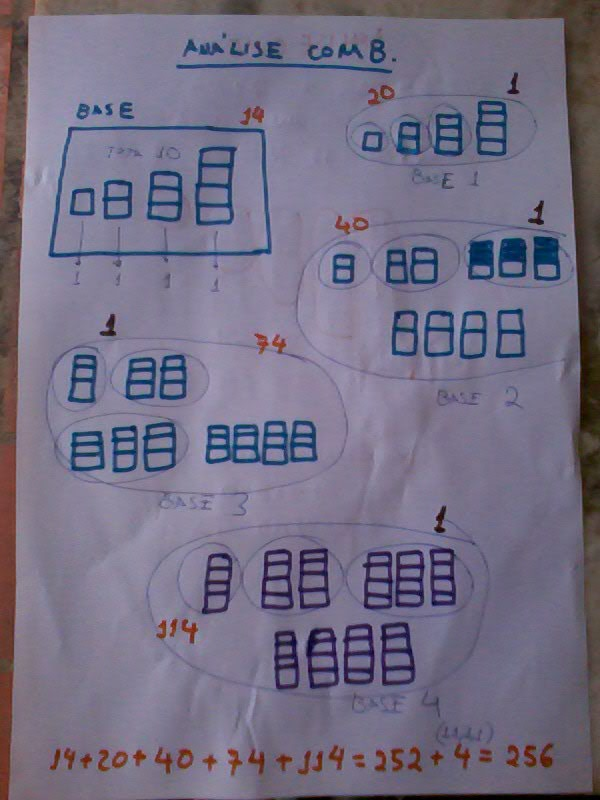 ANÁLISE COMB.
BASE
14
10
1 1 1 1
20
1
BASE 1
40
1
BASE 2
1
74
BASE 3
1
114
BASE 4
14+20+40+74+114=252+4=256